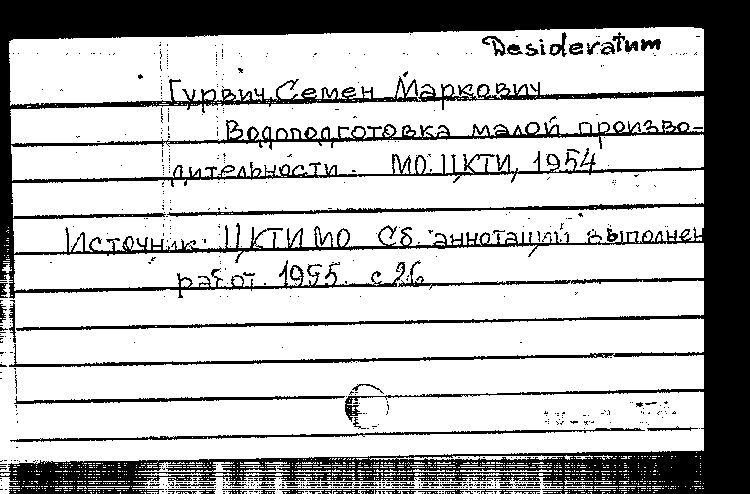 Desideratum
Гурвич, Семен Маркович
Водоподготовка малой произво-
дительности. МО ЦКТИ, 1954
Источник: ЦКТИ МО Сб. аннотаций выполнен
работ. 1955. с 26.